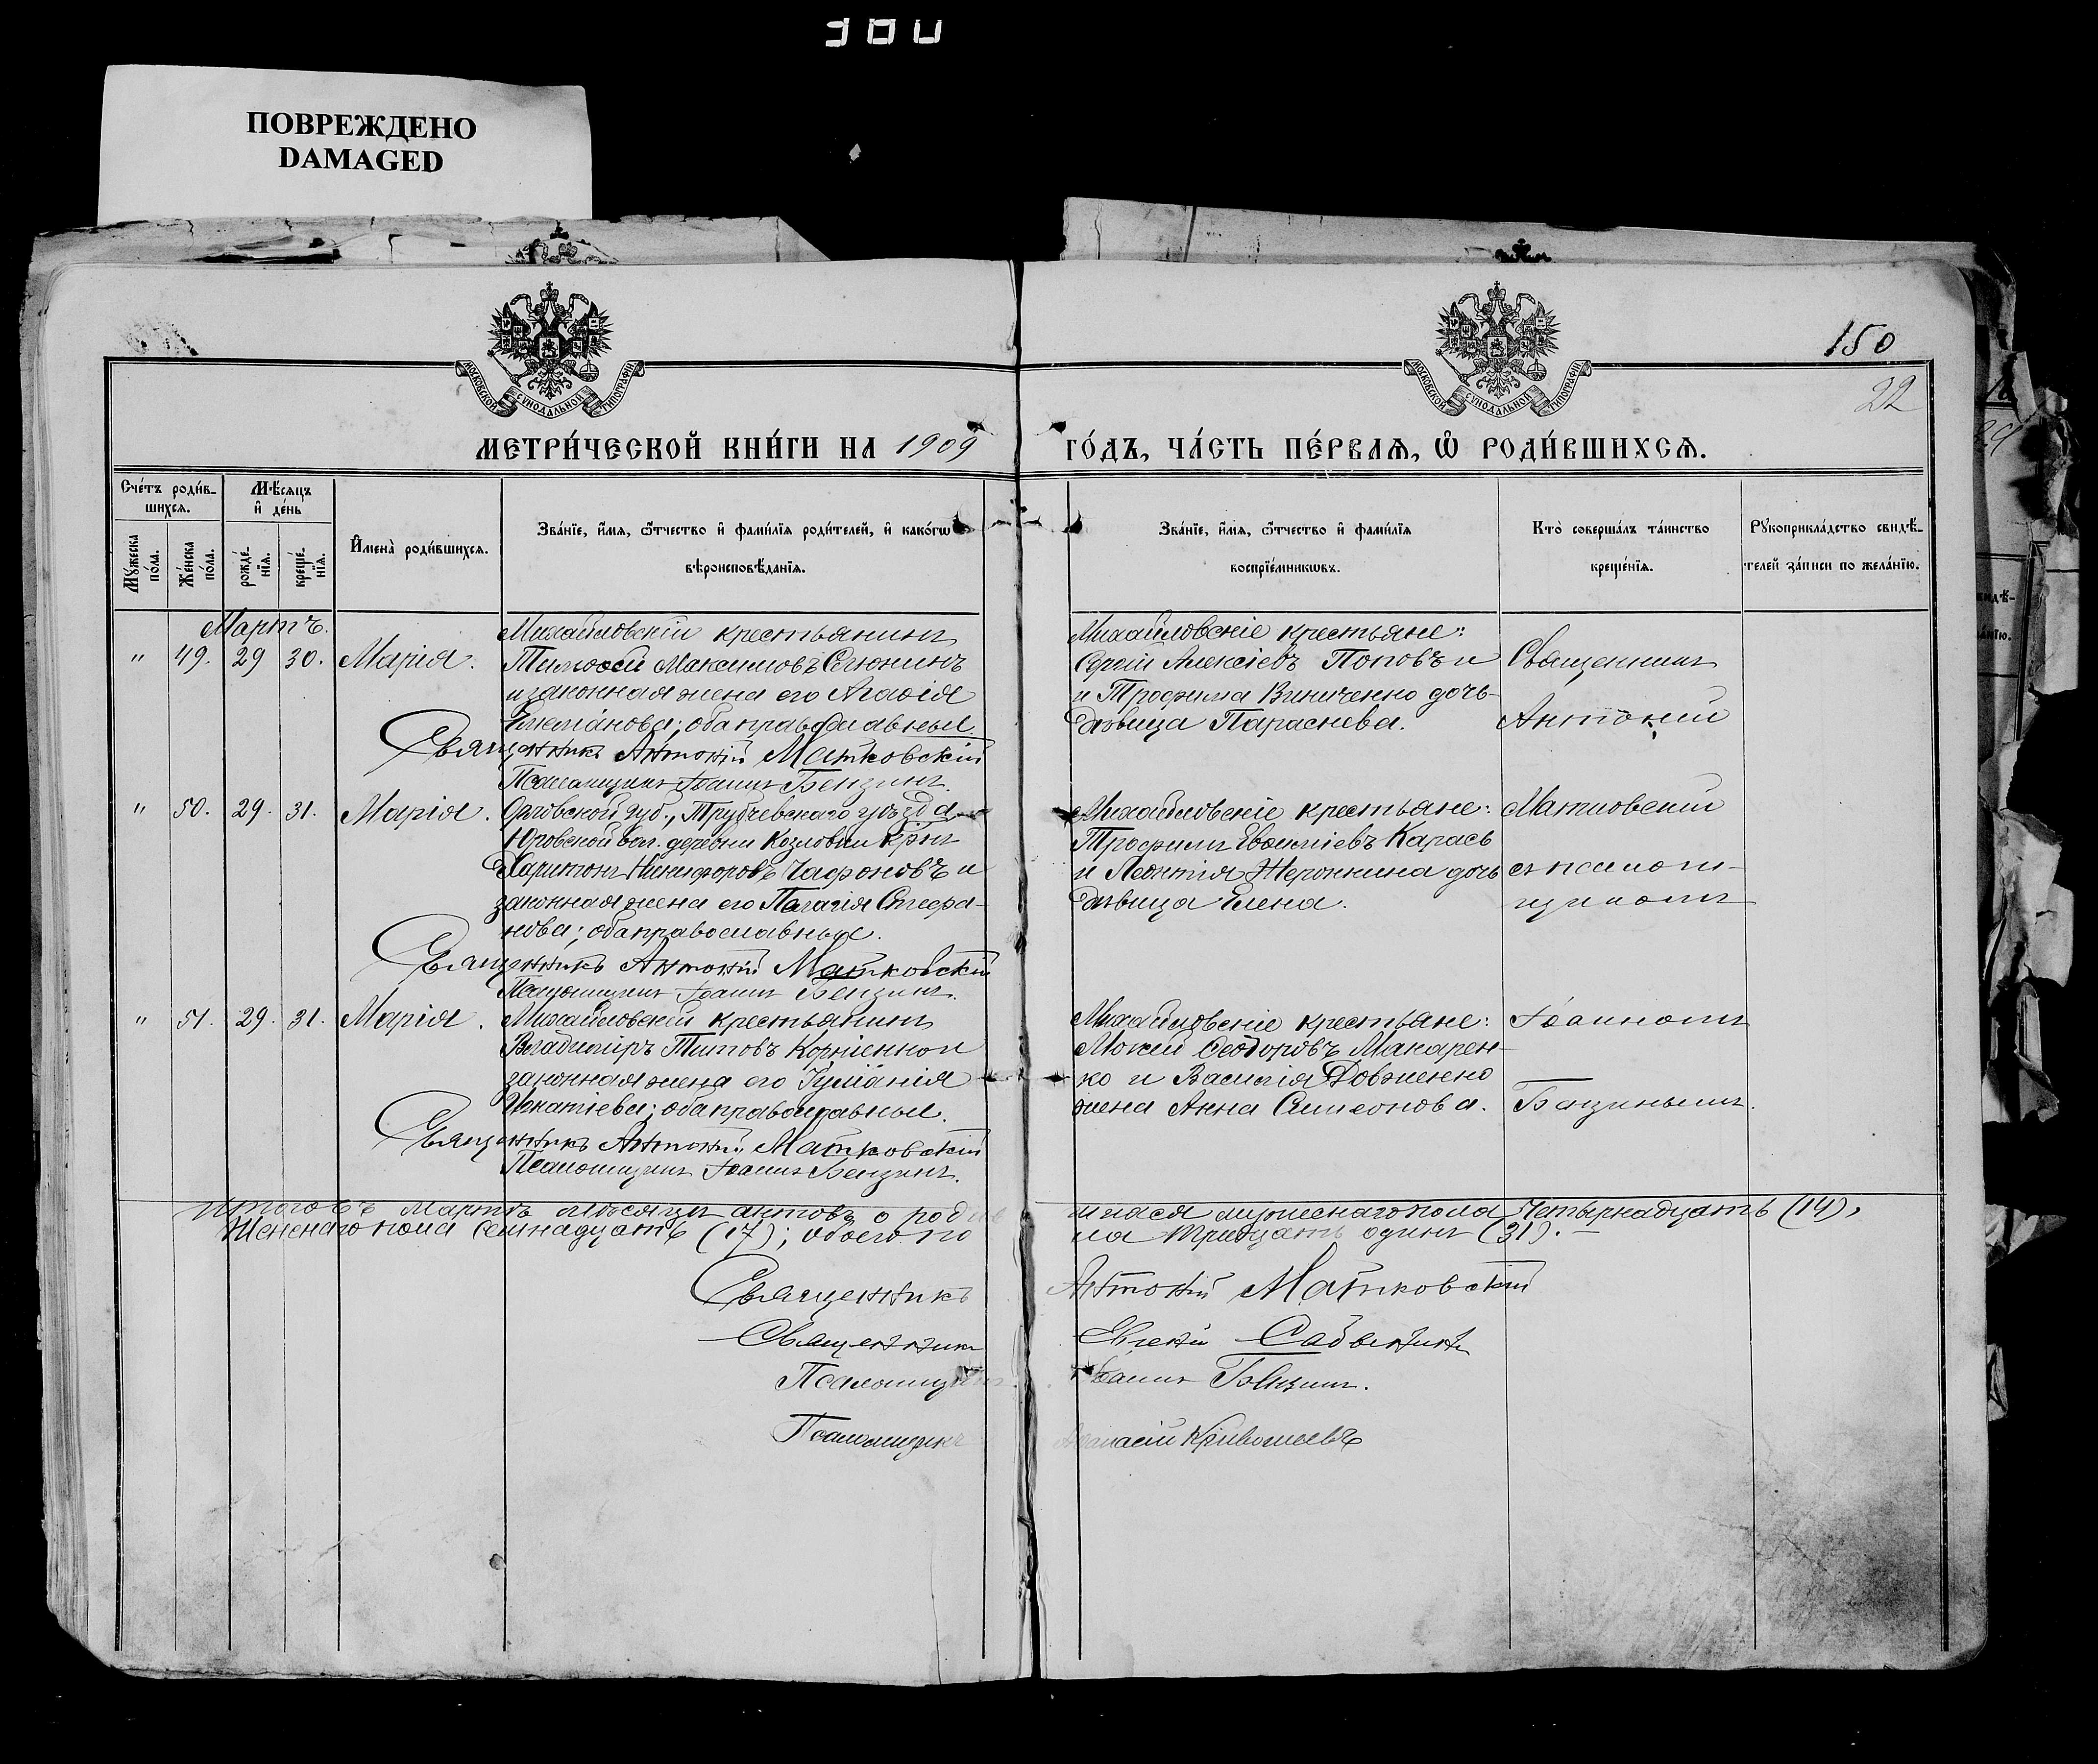 380
ПОВРЕЖДЕНО
DAMAGED
МОСКОВСКОЙ СУНОДАЛЬНОЙ ТИПОГРАФІИ
МОСКОВСКОЙ СУНОДАЛЬНОЙ ТИПОГРАФІИ
150
22
МЕТРИ́ЧЕСКОЙ КНИ́ГИ НА 1909
ГО́ДЪ, ЧА́СТЬ ПЕ́РВАѦ, Ѡ҆ РОДИ́ВШИХСѦ.
Сче́тъ роди́в-
шихсѧ.
Мѣ́сѧцъ
и҆ де́нь
Му́жеска
по́ла.
Же́нска
по́ла.
рожде́-
нїѧ.
креще́-
нїѧ.
И҆мена̀ роди́вшихсѧ.
Зва́нїе, и҆́мѧ, ѻ҆́тчество и҆ фами́лїѧ роди́телей, и҆ како́гѡ
вѣроисповѣ́данїѧ.
Зва́нїе, и҆́мѧ, ѻ҆́тчество и҆ фами́лїѧ
воспрїе́мникѡвъ.
Кто̀ соверша́лъ та́инство
креще́нїѧ.
Рꙋкоприкла́дство свидѣ́-
телей за́писи по жела́нїю.
Мартъ.
" 49. 29 30. Марія.
Михайловскій крестьянинъ
Тимоѳей Максимовъ Сегюнинъ
и законная жена его Агаѳія
оба православные.
Священникъ Антоній Матковскій
Псаломщикъ Іоаннъ Бензинъ.
Михайловскіе крестьяне:
Сергій Алексіевъ Поповъ и
и Трофима Виниченко дочь
дѣвица Параскева.
Священникъ
Антоній
" 50. 29. 31. Марія.
Орловской губ., Трубчевскаго уѣзда
Юровской вол. деревни Козловки крн
Харитонъ Никифоровъ Чафоновъ и
законная жена его Пелагія Стефа-
нова; оба православные.
Священникъ Антоній Матковскій
Псаломщикъ Іоаннъ Бензинъ.
Михайловскіе крестьяне:
Трофимъ Евѳиміевъ Карась
и Леонтія Жеронкина дочь
дѣвица Елена.
Матковскій
съ псалом-
щикомъ
" 51. 29. 31. Марія.
Михайловскій крестьянинъ
Владиміръ Титовъ Корніенко и
законная жена его Іуліанія
Игнатіева; оба православные.
Священникъ Антоній Матковскій
Псаломщикъ Іоаннъ Бензинъ.
Михайловскіе крестьяне:
Мокей Ѳеодоровъ Макарен-
ко и Василія Довженко
жена Анна Симеонова.
Іоанномъ
Бензинымъ.
Итого въ Мартѣ мѣсяцѣ актовъ о родив
шихся мужескаго пола Четырнадцать (14),
Женскаго пола Семнадцать (17); обоего по
ла тридцать одинъ (31). —
Священникъ Антоній Матковскій
Священникъ Евгеній
Псаломщикъ Іоаннъ Бензинъ.
Псаломщикъ Аѳанасій Кривошеевъ